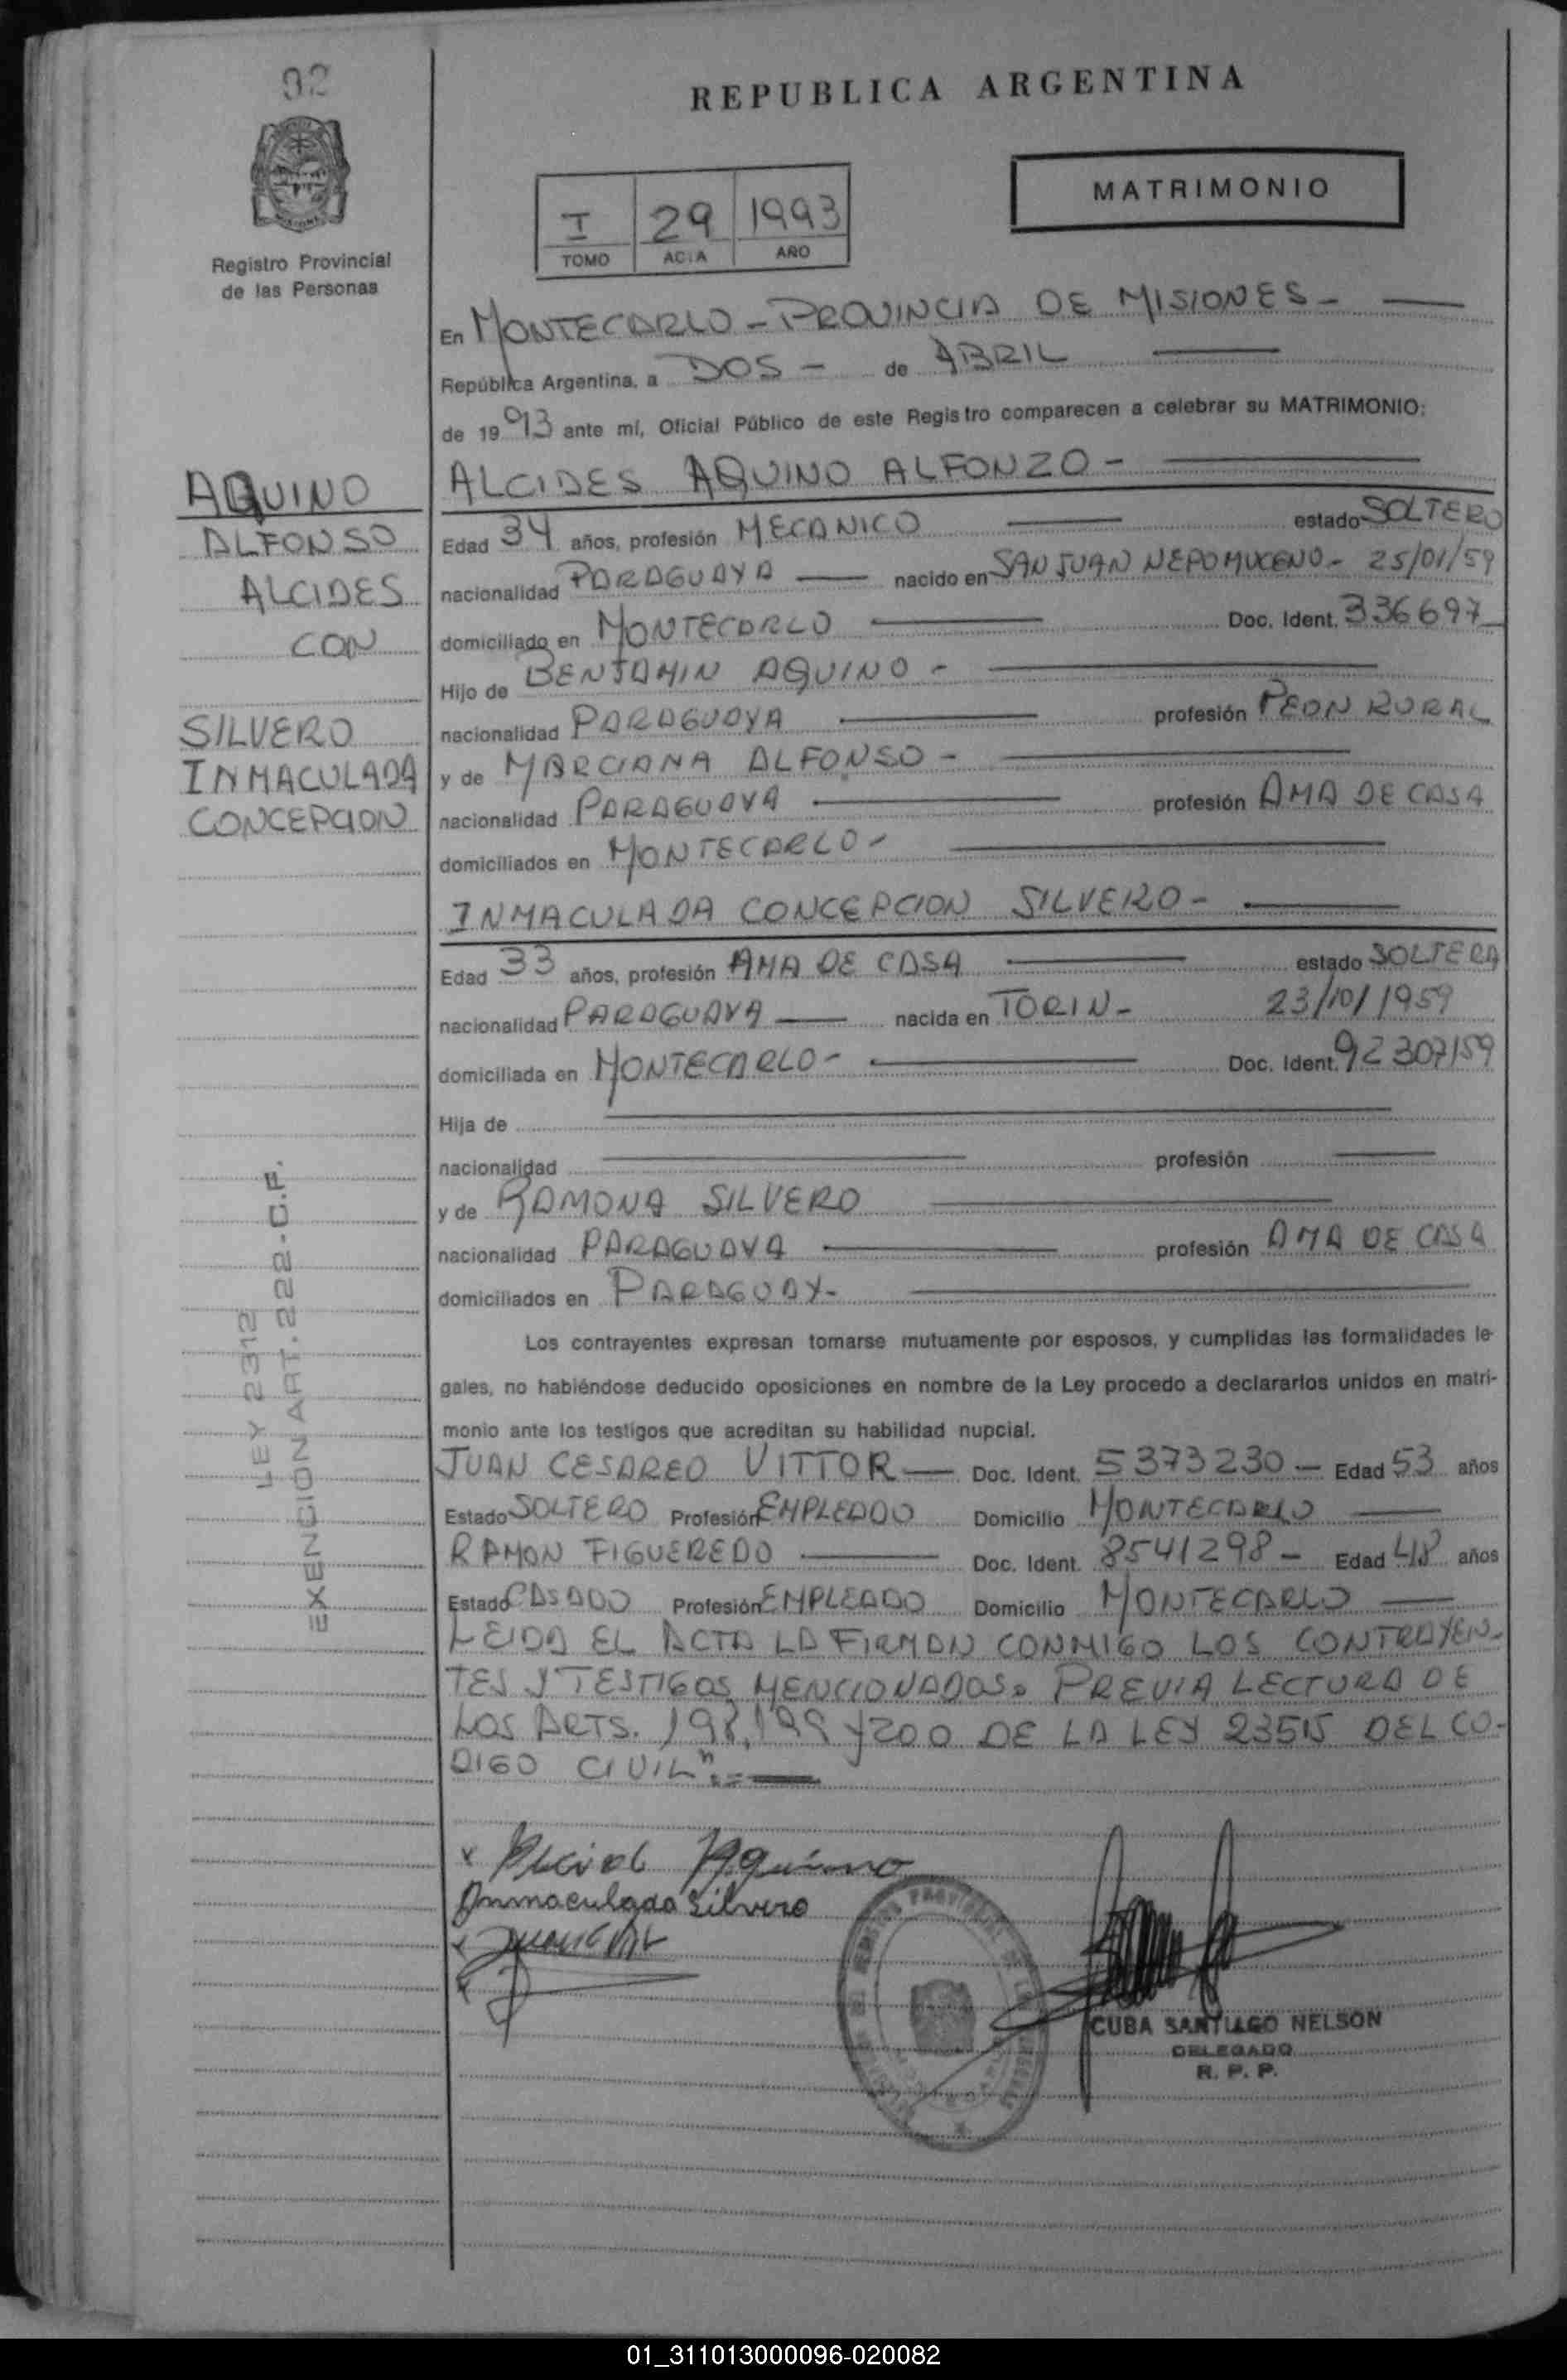 92
REPUBLICA ARGENTINA
MATRIMONIO
I 29 1993
TOMO ACTA AÑO
Registro Provincial
de las Personas
En MONTECARLO - PROVINCIA DE MISIONES -
República Argentina, a DOS - de ABRIL
de 1993 ante mí, Oficial Público de este Registro comparecen a celebrar su MATRIMONIO:
AQUINO
ALFONSO
ALCIDES
CON
SILVERO
INMACULADA
CONCEPCION
ALCIDES AQUINO ALFONZO -
Edad 34 años, profesión MECANICO estado SOLTERO
nacionalidad PARAGUAYA nacido en SAN JUAN NEPOMUCENO - 25/01/59
domiciliado en MONTECARLO Doc. Ident. 336697
Hijo de BENJAMIN AQUINO -
nacionalidad PARAGUAYA profesión PEON RURAL
y de MARCIANA ALFONSO -
nacionalidad PARAGUAYA profesión AMA DE CASA
domiciliados en MONTECARLO -
INMACULADA CONCEPCION SILVERO -
Edad 33 años, profesión AMA DE CASA estado SOLTERA
nacionalidad PARAGUAYA nacida en TORIN - 23/10/1959
domiciliada en MONTECARLO - Doc. Ident. 92307159
Hija de
nacionalidad profesión
y de RAMONA SILVERO
nacionalidad PARAGUAYA profesión AMA DE CASA
domiciliados en PARAGUAY -
LEY 2312
EXENCION ART. 222 - C.F.
Los contrayentes expresan tomarse mutuamente por esposos, y cumplidas las formalidades le-
gales, no habiéndose deducido oposiciones en nombre de la Ley procedo a declararlos unidos en matri-
monio ante los testigos que acreditan su habilidad nupcial.
JUAN CESAREO VITTOR — Doc. Ident. 5373230 — Edad 53 años
Estado SOLTERO Profesión EMPLEADO Domicilio MONTECARLO
RAMON FIGUEREDO Doc. Ident. 8541298 - Edad 48 años
Estado CASADO Profesión EMPLEADO Domicilio MONTECARLO
LEIDA EL ACTA LA FIRMAN CONMIGO LOS CONTRAYEN-
TES Y TESTIGOS MENCIONADOS. PREVIA LECTURA DE
LOS ARTS. 198, 199 Y 200 DE LA LEY 23515 DEL CO-
DIGO CIVIL".=
x Alcides Aquino
Inmaculada Silvero
CUBA SANTIAGO NELSON
DELEGADO
R. P. P.
01_311013000096-020082